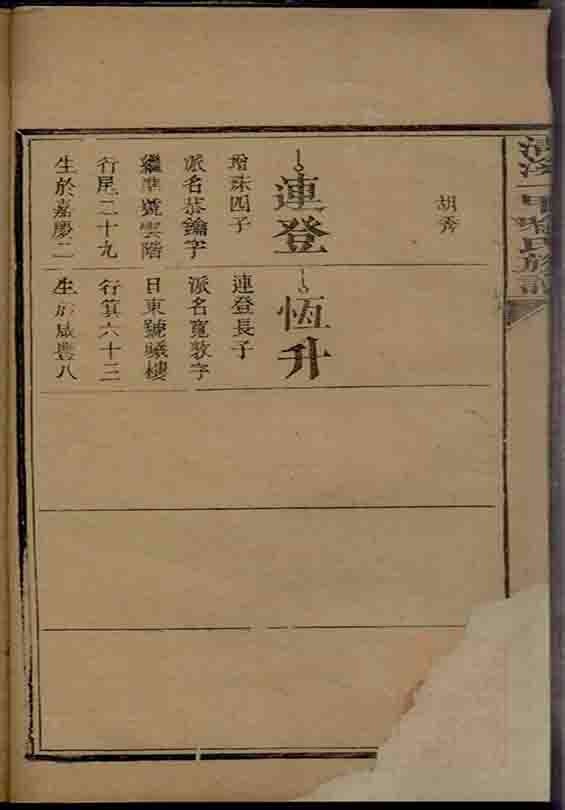 族譜
胡秀
連登
增珠四子
派名恭鑰字
繼準號雲階
行尾二十九
生於嘉慶二
恆升
連登長子
派名寬敦字
日東號曦樓
行箕六十三
生於咸豐八